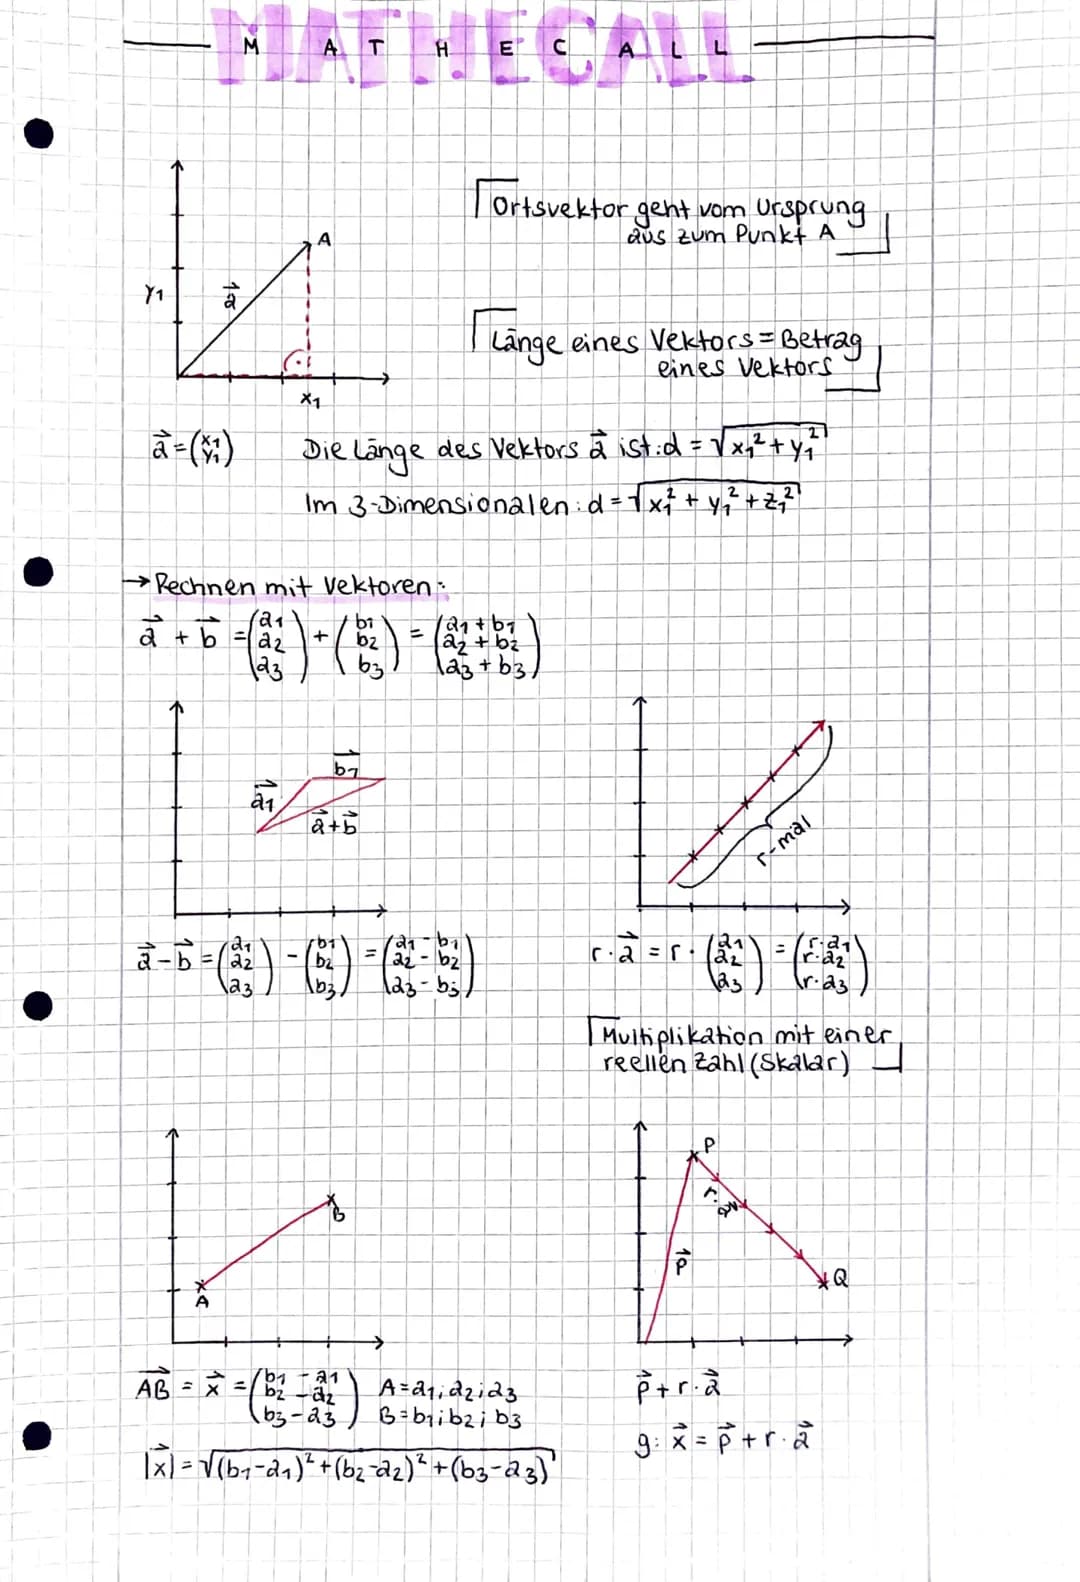 MATHECALL
A
Y1
a⃗
x1
Ortsvektor geht vom Ursprung
aus zum Punkt A
Länge eines Vektors = Betrag
eines Vektors
a⃗ = (x1 y1) Die Länge des Vektors a⃗ ist: d = √(x1² + y1²)
Im 3-Dimensionalen: d = √(x1² + y1² + z1²)
→ Rechnen mit Vektoren:
a⃗ + b⃗ = (a1 a2 a3) + (b1 b2 b3) = (a1 + b1 a2 + b2 a3 + b3)
b1⃗
a1⃗
a⃗ + b⃗
r-mal
a⃗ - b⃗ = (a1 a2 a3) - (b1 b2 b3) = (a1 - b1 a2 - b2 a3 - b3)
r · a⃗ = r · (a1 a2 a3) = (r·a1 r·a2 r·a3)
Multiplikation mit einer
reellen Zahl (Skalar)
B
A
P
r·a⃗
p⃗
Q
AB⃗ = x⃗ = (b1 - a1 b2 - a2 b3 - a3) A = a1; a2; a3
B = b1; b2; b3
|x⃗| = √((b1-a1)² + (b2-a2)² + (b3-a3)
p⃗ + r · a⃗
g: x⃗ = p⃗ + r · a⃗